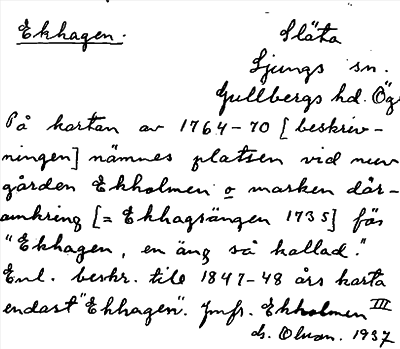 Ekhagen. Släta
Ljungs sn.
Gullbergs hd. Ög
På kartan av 1764-70 [beskriv-
ningen] nämnes platsen vid nuv
gården Ekholmen o marken där-
omkring [= Ekhagsängen 1735] fås
"Ekhagen, en äng så kallad."
Enl. beskr. till 1847-48 års karta
endast "Ekhagen". Jmfr. Ekholmen III
ds. 1937